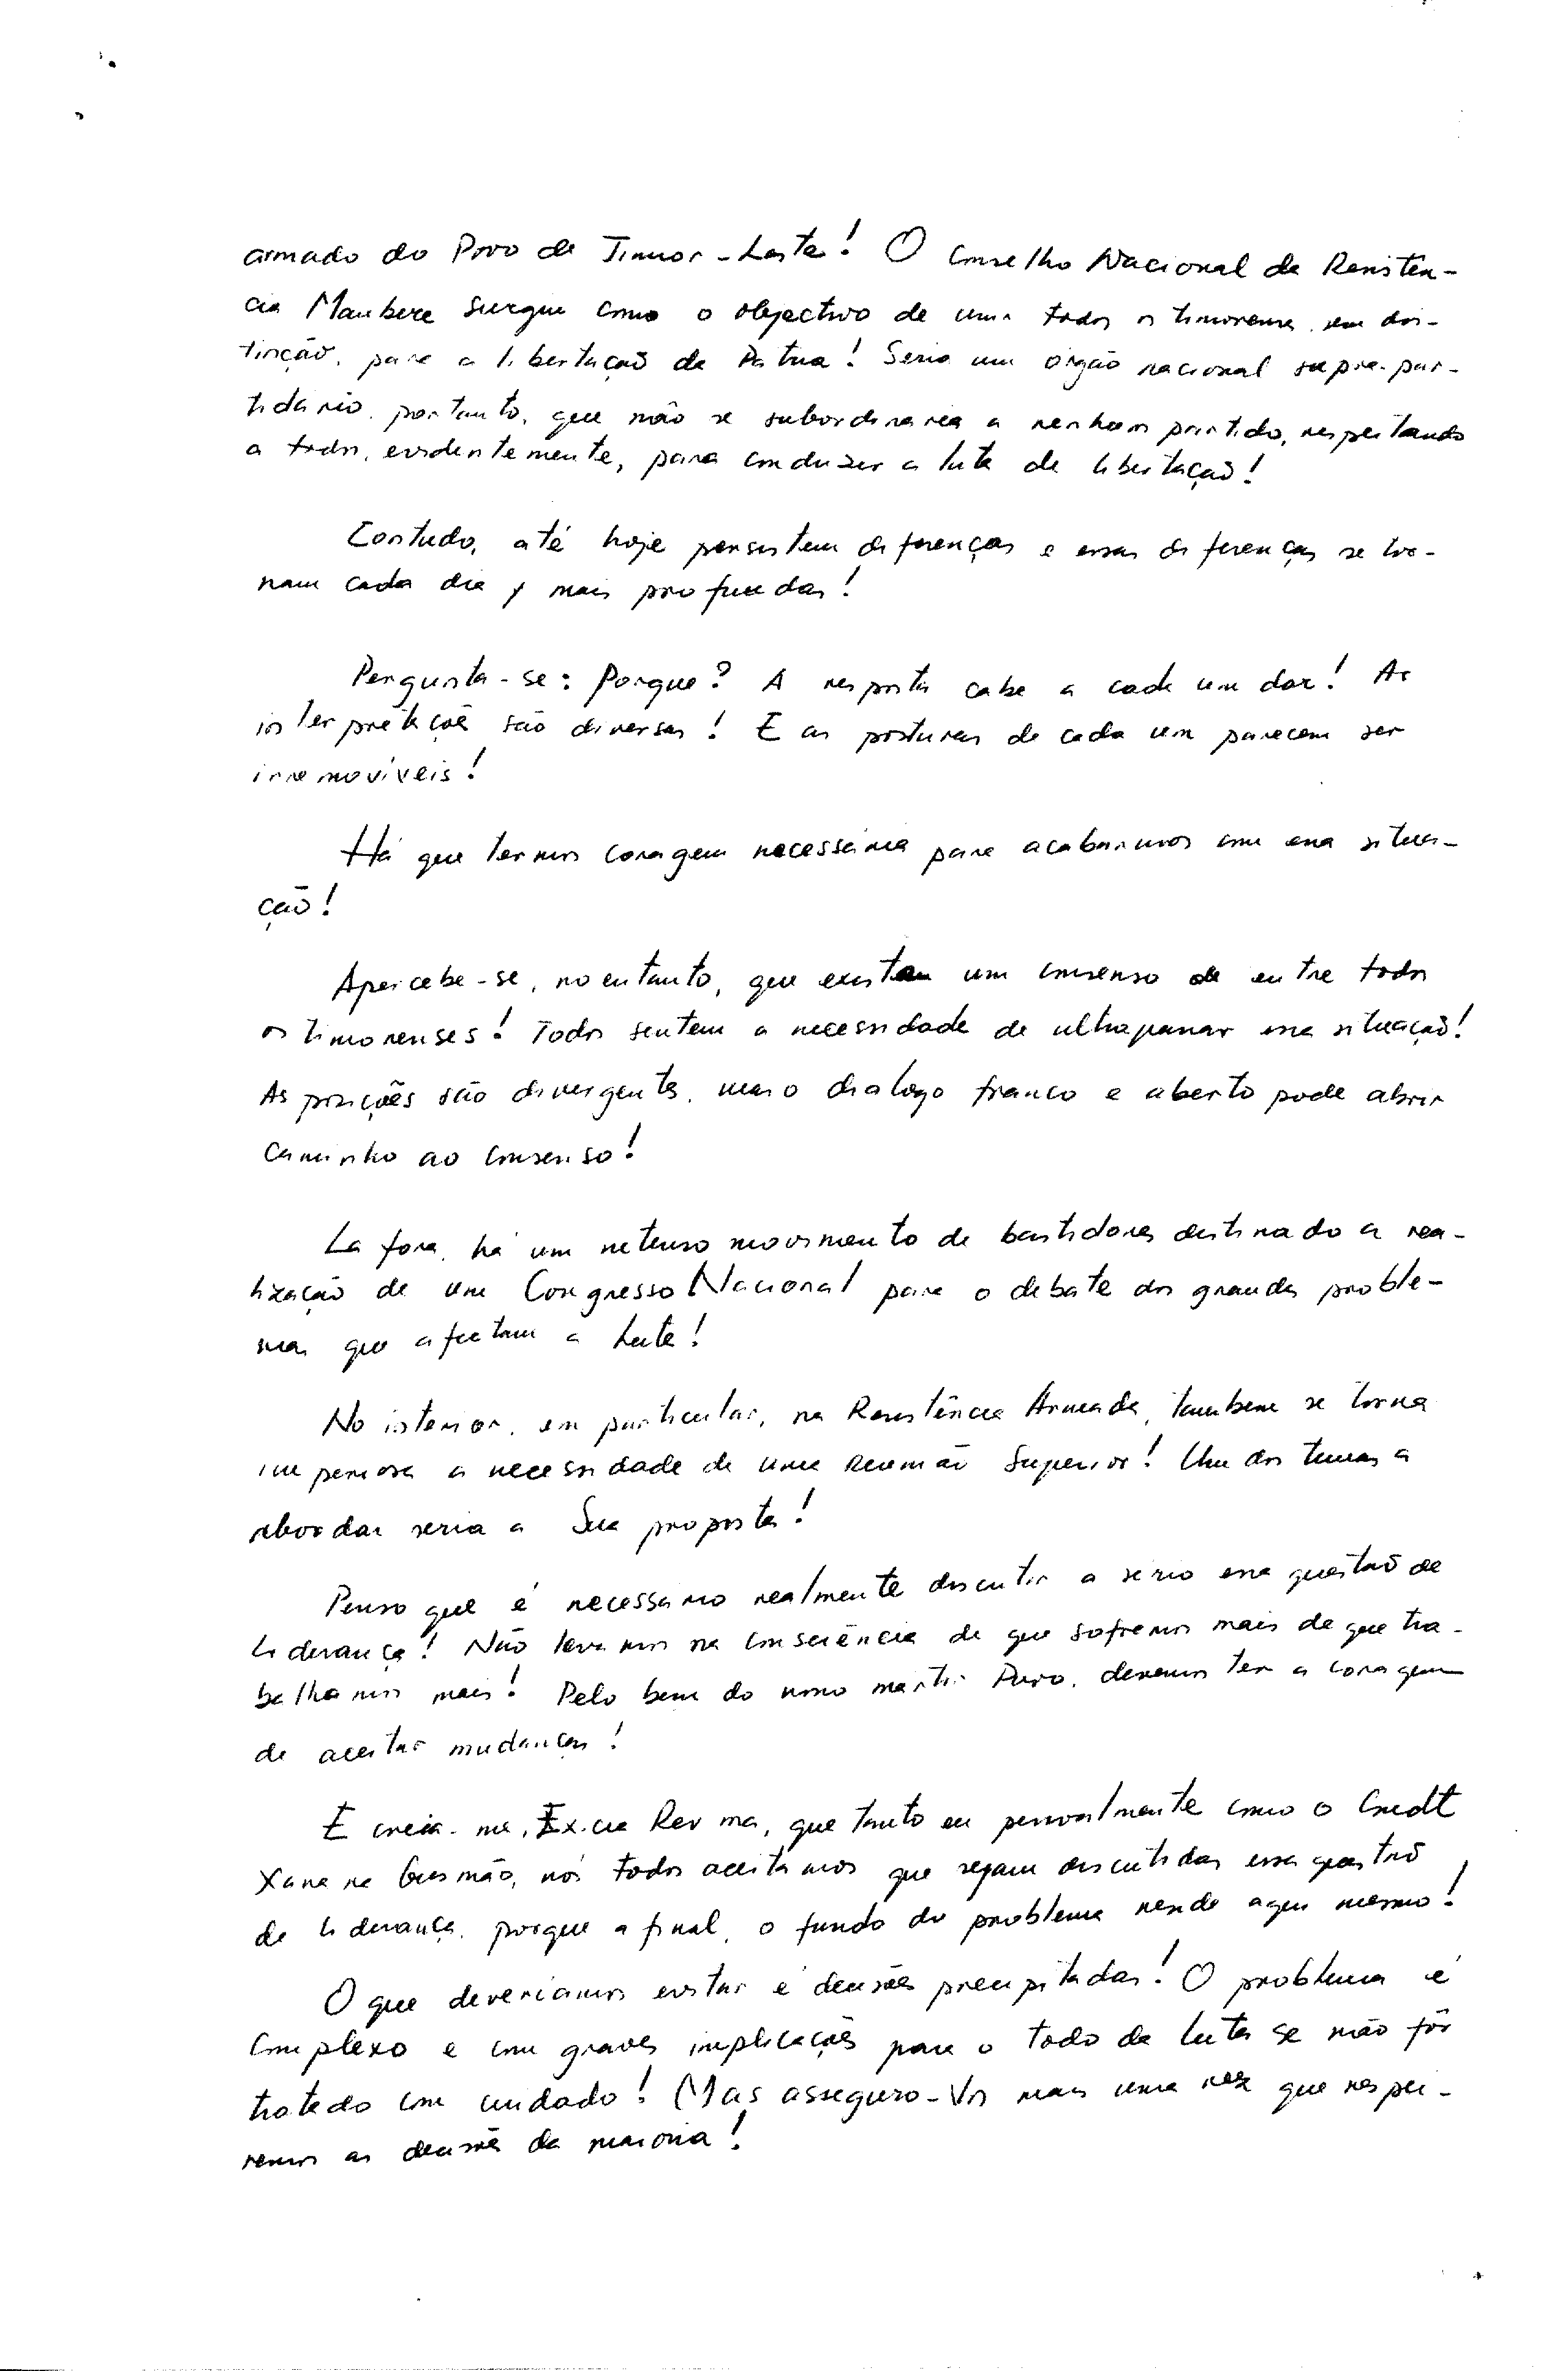 armado do Povo de Timor-Leste! O Conselho Nacional da Resistên-
cia Maubere surgiu como o objectivo de unir todos os timorenses, sem dis-
tinção, para a libertação da Pátria! Seria um orgão nacional supra-par-
tidário, portanto, que não se subordinaria a nenhum partido, respeitando
a todos, evidentemente, para conduzir a luta de libertação!
Contudo, até hoje persistem diferenças e essas diferenças se tor-
nam cada dia mais profundas!
Pergunta-se: Porque? A resposta cabe a cada um dar! As
interpretações são diversas! E as posturas de cada um parecem ser
irremovíveis!
Há que termos coragem necessária para acabarmos com essa situa-
ção!
Apercebe-se, no entanto, que existe um consenso de entre todos
os timorenses! Todos sentem a necessidade de ultrapassar essa situação!
As posições são divergentes, mas o dialogo franco e aberto pode abrir
caminho ao consenso!
Lá fora, há um intenso movimento de bastidores destinado a rea-
lização de um Congresso Nacional para o debate dos grandes proble-
mas que afectam a Luta!
No interior, em particular, na Resistência Armada, tambem se torna
imperiosa a necessidade de uma reunião Superior! Um dos temas a
abordar seria a Sua proposta!
Penso que é necessario realmente discutir a serio essa questão de
liderança! Não levamos na consciência de que sofremos mais de que tra-
balhamos mais! Pelo bem do nosso martir Povo, devemos ter a coragem
de aceitar mudanças!
E creia-me, Ex.cia Rev ma, que tanto eu pessoalmente como o Cmdt
Xanana Gusmão, nós todos aceitamos que sejam discutidas essa questão
de liderança, porque afinal, o fundo do problema reside aqui mesmo!
O que deveriamos evitar é decisões precipitadas! O problema é
complexo e com graves implicações para o todo da luta se não fôr
tratado com cuidado! Mas asseguro-Vos mais uma vez que respei-
remos as decisões da maioria!